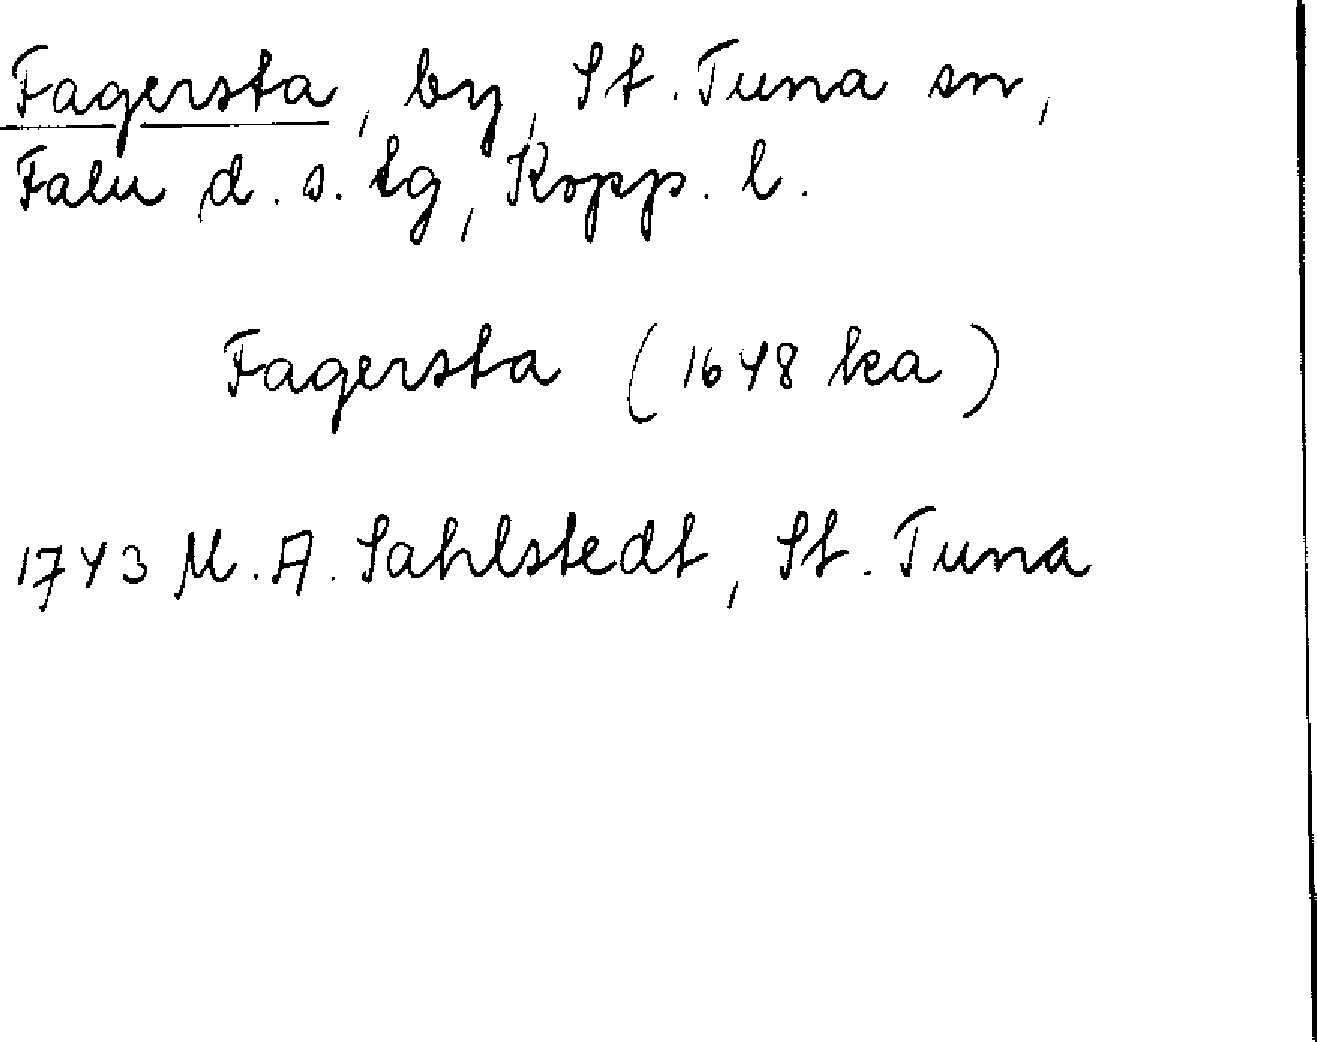 Fagersta, by, St. Tuna sn,
Falu d. s. tg, Kopp. l.
Fagersta (1648 ka)
1743 M. A. Sahlstedt, St. Tuna